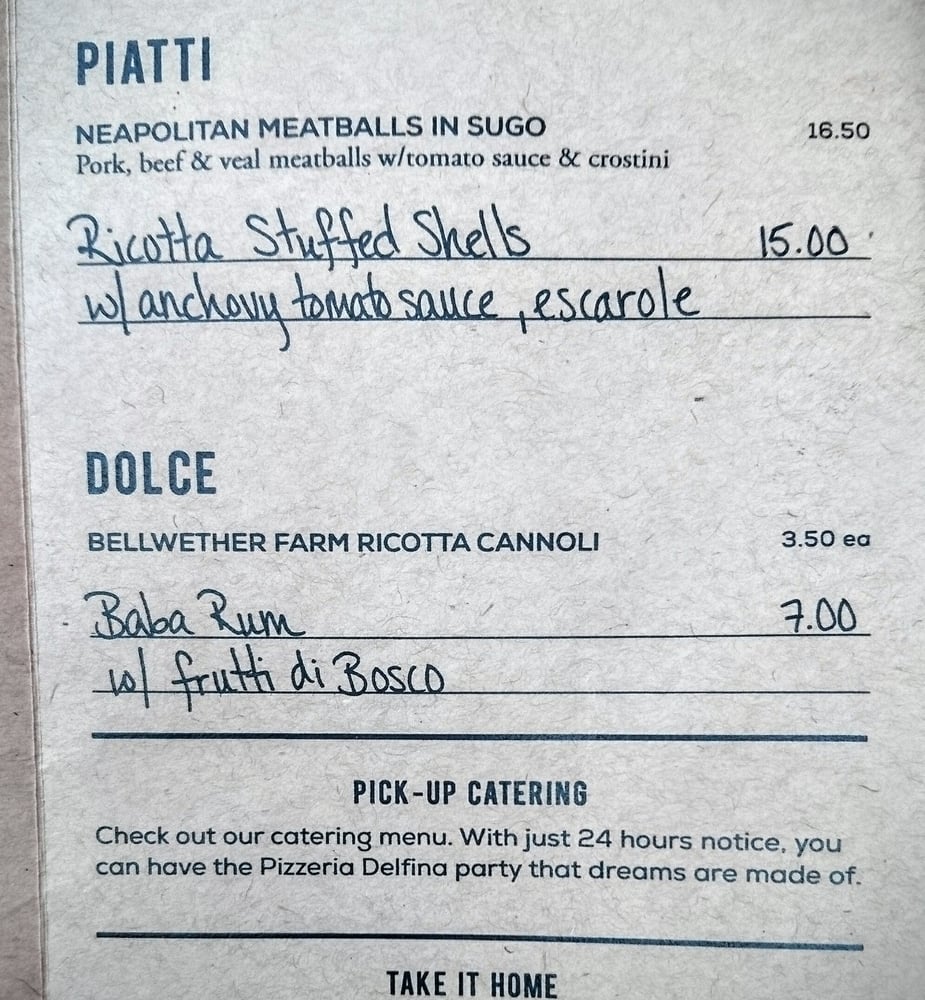 PIATTI
NEAPOLITAN MEATBALLS IN SUGO 16.50
Pork, beef & veal meatballs w/tomato sauce & crostini
Ricotta Stuffed Shells 15.00
w/ anchovy tomato sauce, escarole
DOLCE
BELLWETHER FARM RICOTTA CANNOLI 3.50 ea
Baba Rum 7.00
w/ frutti di Bosco
PICK-UP CATERING
Check out our catering menu. With just 24 hours notice, you
can have the Pizzeria Delfina party that dreams are made of.
TAKE IT HOME